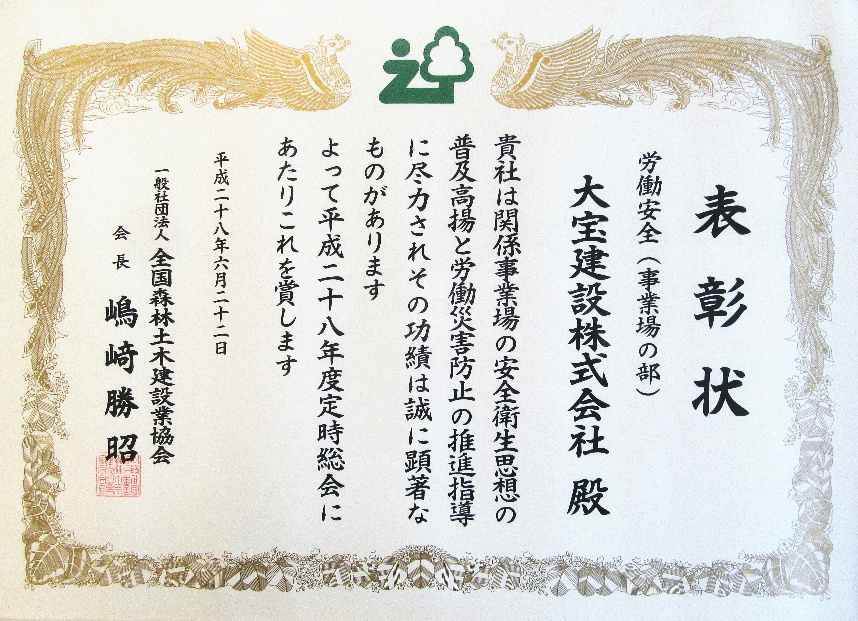 表彰状
労働安全(事業場の部)
大宝建設株式会社 殿
貴社は関係事業場の安全衛生思想の
普及高揚と労働災害防止の推進指導
に尽力されその功績は誠に顕著な
ものがあります
よって平成二十八年度定時総会に
あたりこれを賞します
平成二十八年六月二十二日
一般社団法人 全国森林土木建設業協会
会長 嶋﨑勝昭